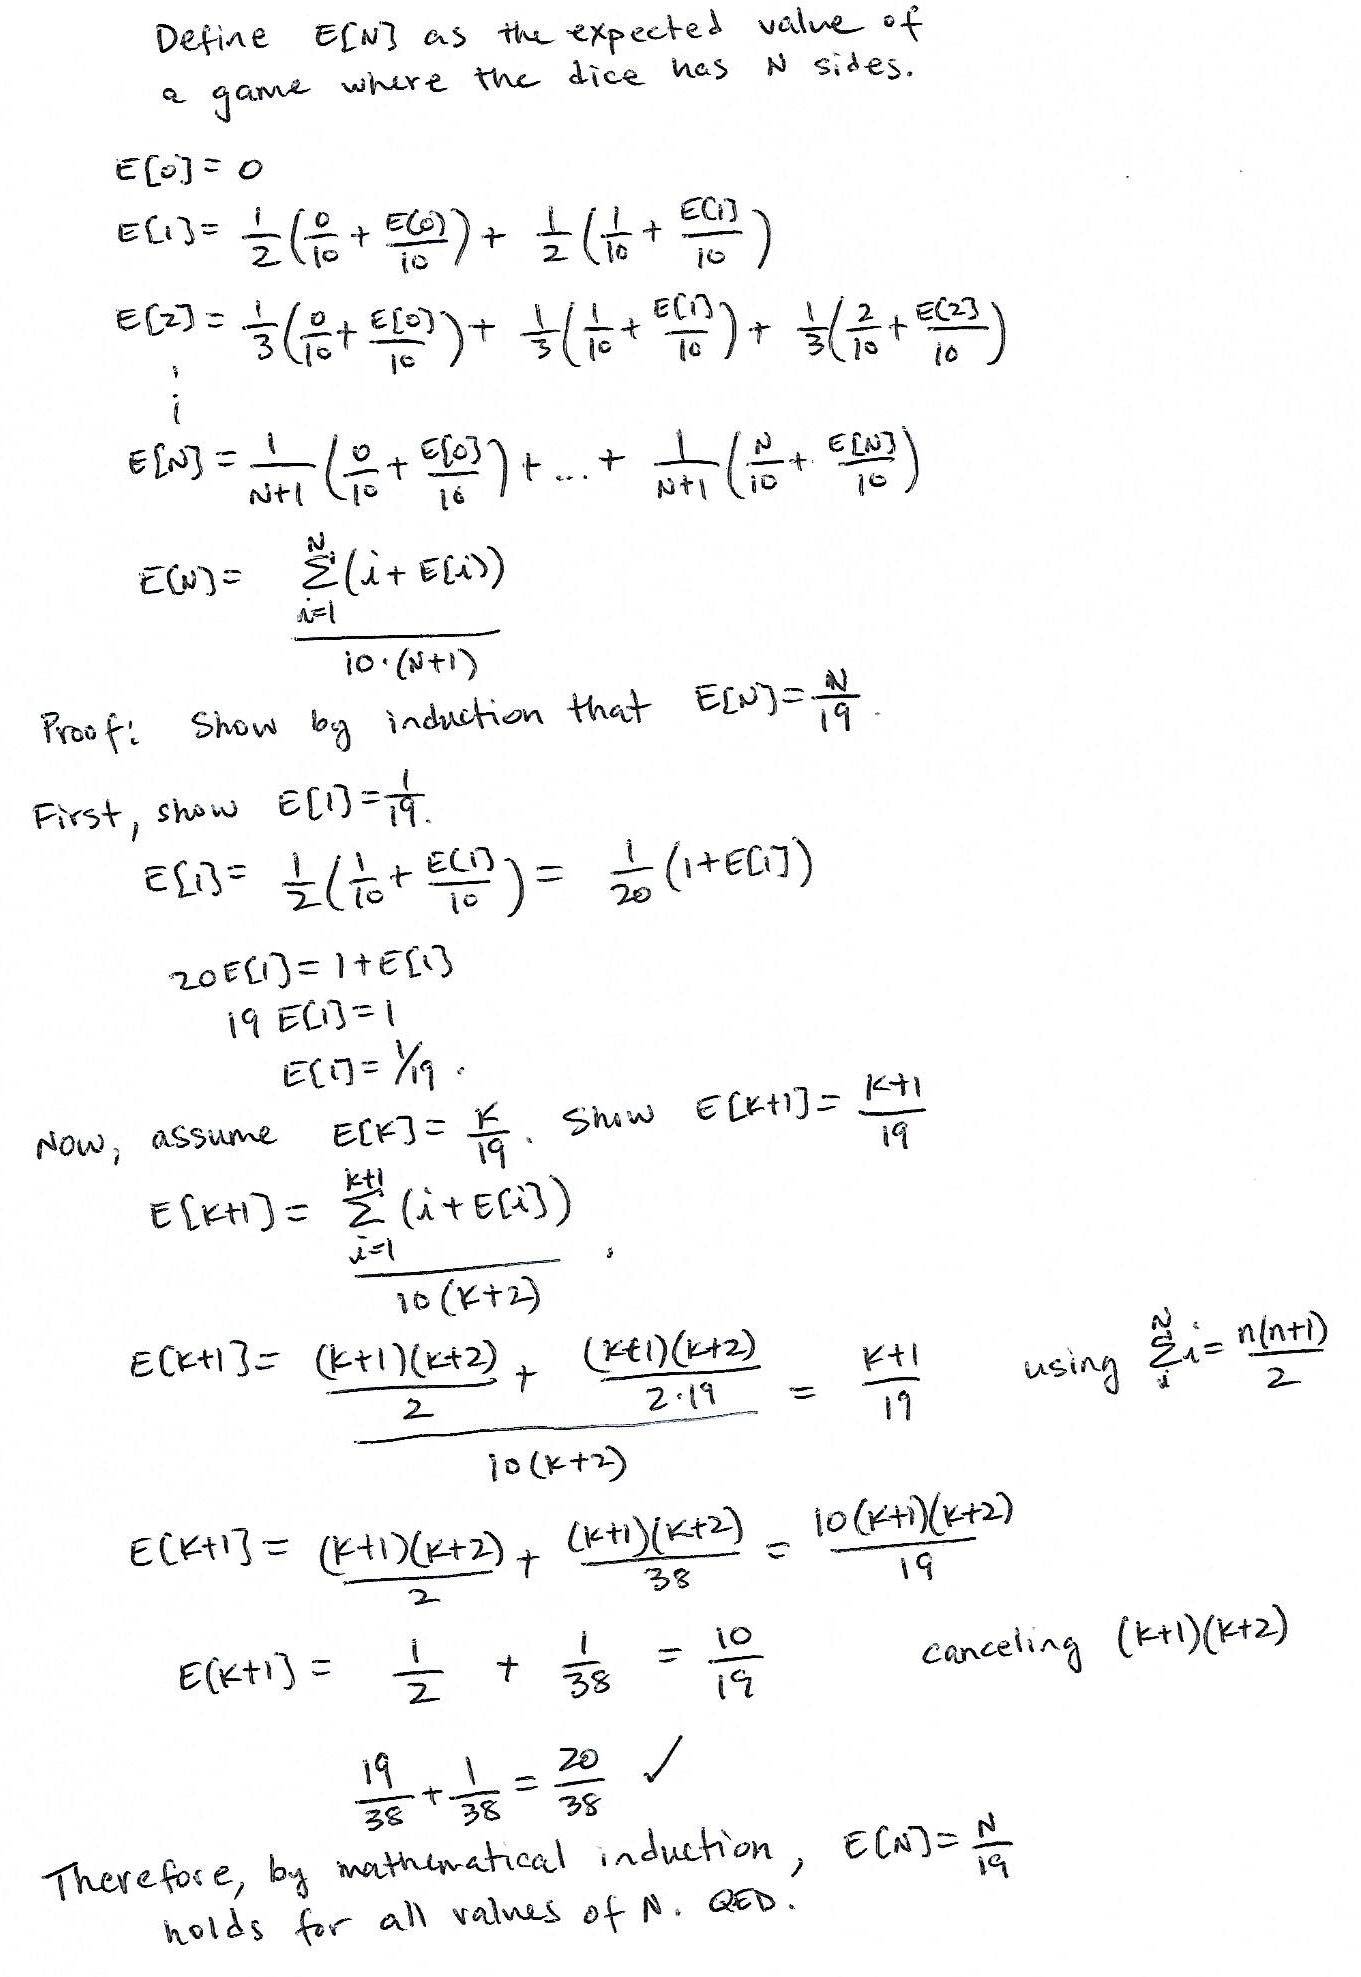 Define E[N] as the expected value of
a game where the dice has N sides.
E[0] = 0
E[1] = 1/2 (0/10 + E[0]/10) + 1/2 (1/10 + E[1]/10)
E[2] = 1/3 (0/10 + E[0]/10) + 1/3 (1/10 + E[1]/10) + 1/3 (2/10 + E[2]/10)
⋮
E[N] = 1/(N+1) (0/10 + E[0]/10) + ... + 1/(N+1) (N/10 + E[N]/10)
E[N] = Σ_{i=1}^{N} (i + E[i]) / 10·(N+1)
Proof: Show by induction that E[N] = N/19.
First, show E[1] = 1/19.
E[1] = 1/2 (1/10 + E[1]/10) = 1/20 (1+E[1])
20E[1] = 1+E[1]
19 E[1] = 1
E[1] = 1/19.
Now, assume E[K] = K/19. Show E[K+1] = K+1/19
E[K+1] = Σ_{i=1}^{k+1} (i + E[i]) / 10(K+2).
E[K+1] = ((K+1)(K+2)/2 + (K+1)(K+2)/2·19) / 10(K+2) = K+1/19 using Σ_{i}^{N} i = n(n+1)/2
E[K+1] = (K+1)(K+2)/2 + (K+1)(K+2)/38 = 10(K+1)(K+2)/19
E[K+1] = 1/2 + 1/38 = 10/19 canceling (K+1)(K+2)
19/38 + 1/38 = 20/38 ✓
Therefore, by mathematical induction, E[N] = N/19
holds for all values of N. QED.